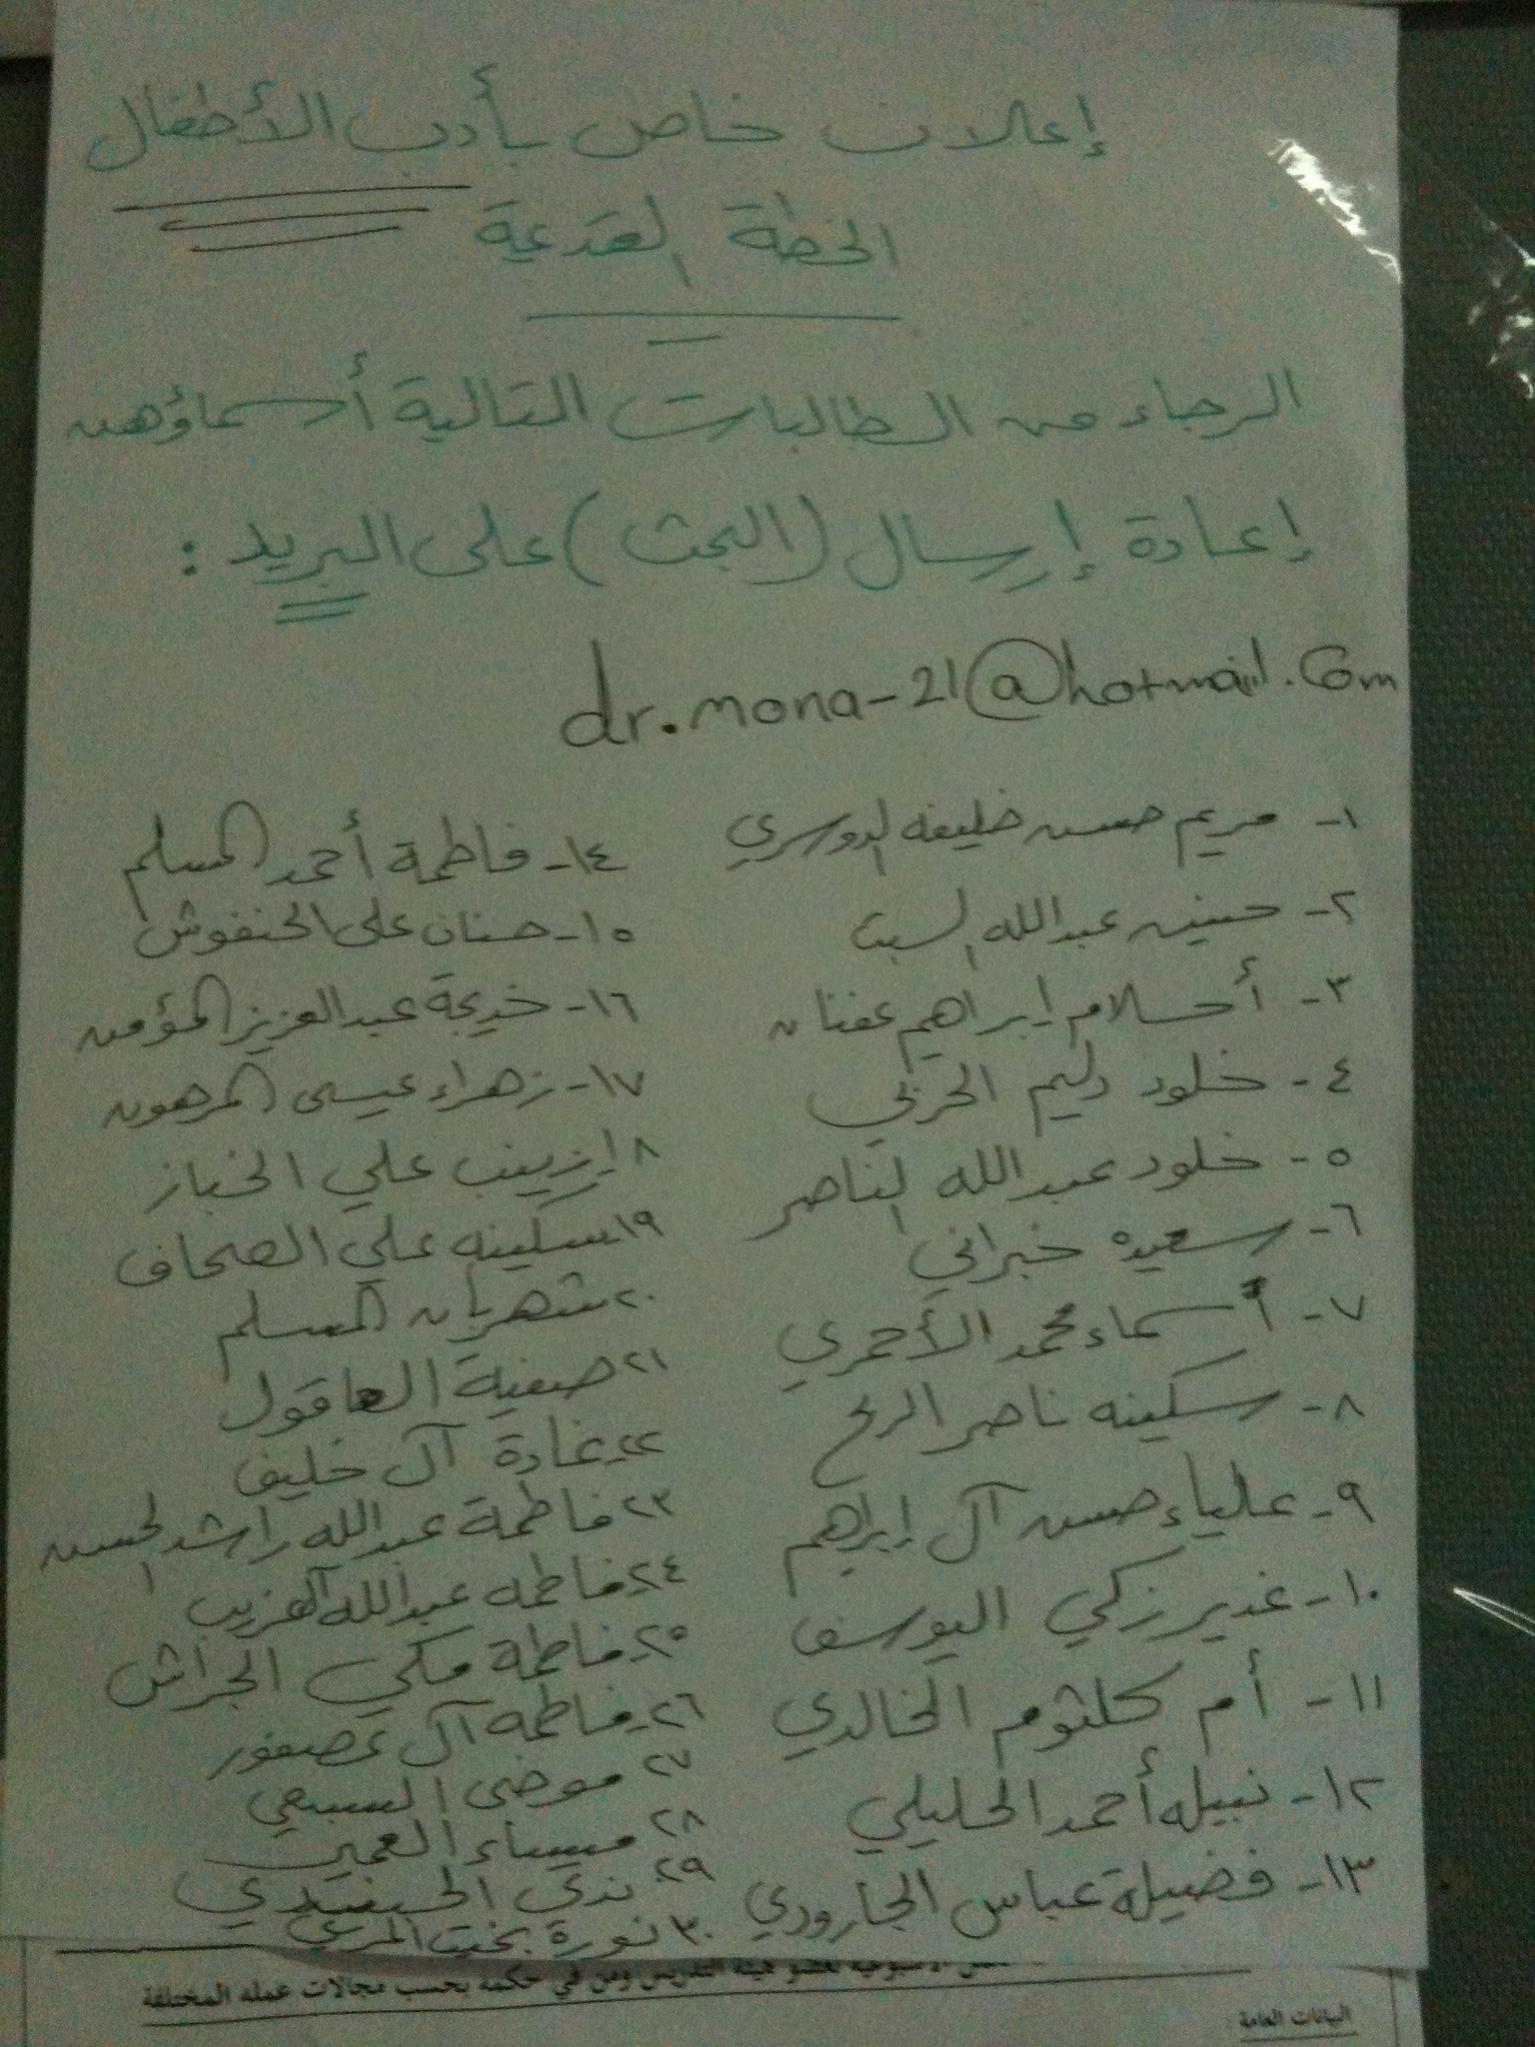 إعلان خاص بأدب الأطفال
الخطة القدعية
الرجاء من الطالبات التالية أسماؤهن
إعادة إرسال (البحث) على البريد :
dr.mona-21@hotmail.com
١- مريم حسن خليفه الدوسري
٢- حسنيه عبدالله السبت
٣- أحلام إبراهيم عفنان
٤- خلود دليم الحربي
٥- خلود عبدالله الناصر
٦- سعيده خبراني
٧- أسماء محمد الأحمري
٨- سكينه ناصر الربح
٩- علياء حسن آل إبراهيم
١٠- غدير زكي اليوسف
١١- أم كلثوم الخالدي
١٢- نبيله أحمد الحليلي
١٣- فضيلة عباس الجارودي
١٤- فاطمة أحمد المسلم
١٥- حنان على الخنفوش
١٦- خديجة عبدالعزيز المؤمن
١٧- زهراء عيسى المرهون
١٨- زينب علي الخباز
١٩- سكينه علي الصحاف
٢٠- شهربان المسلم
٢١- صفية العاقول
٢٢- غادة آل خليف
٢٣- فاطمة عبدالله راشد الحسن
٢٤- فاطمه عبدالله الغريب
٢٥- فاطمة مكي الجراش
٢٦- فاطمه آل عصفور
٢٧- موضى السبيعي
٢٨- ميساء العمير
٢٩- ندى الحفيدي
٣٠- نورة بخيت المري
لعضو هيئة التدريس ومن في حكمه بحسب مجالات عمله المختلفة
البيانات العامة